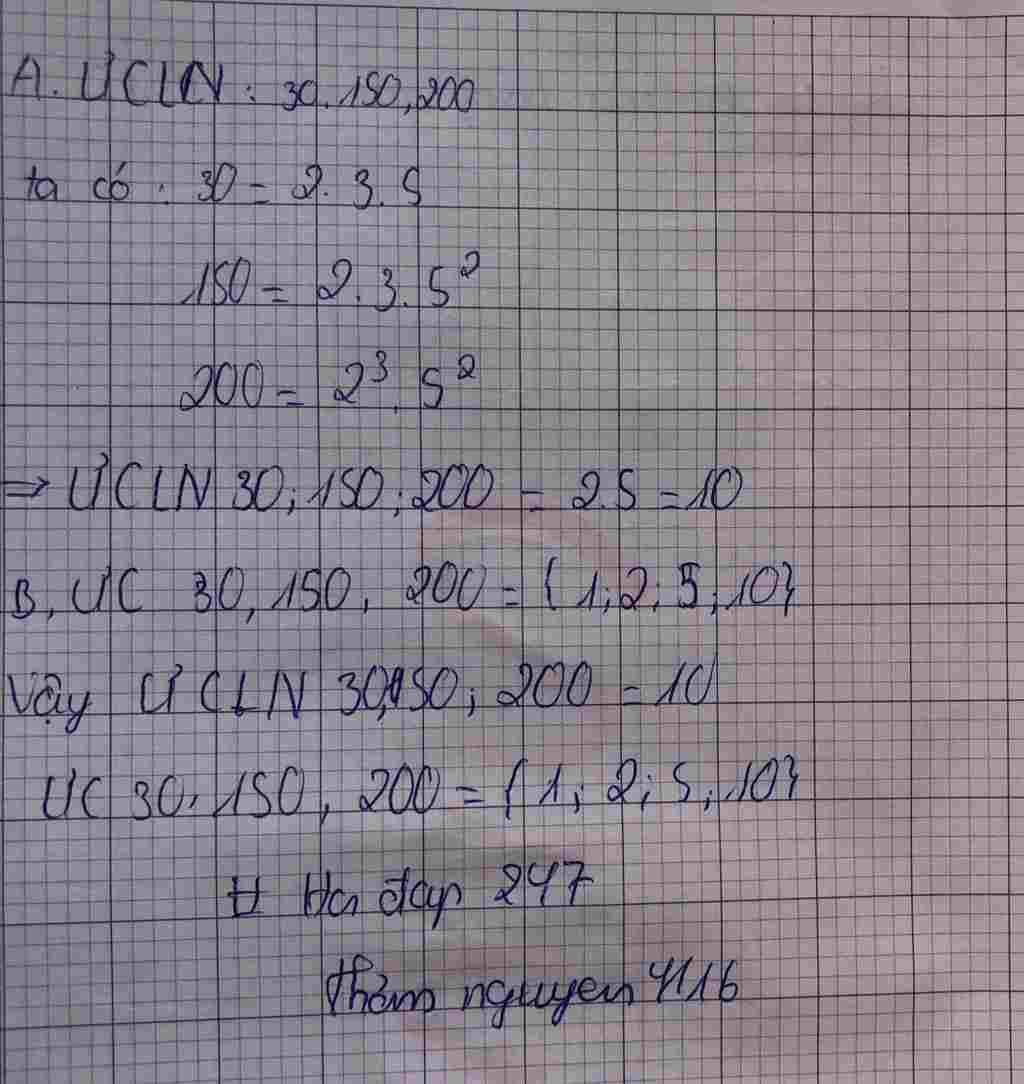 A. ƯCLN: 30.150,200
ta có: 30 = 2.3.5
150 = 2.3.5²
200 = 2³.5²
⇒ ƯCLN 30; 150; 200 = 2.5 = 10
B, ƯC 30, 150, 200 = {1; 2; 5; 10}
Vậy ƯCLN 30,150; 200 = 10
ƯC 30, 150, 200 = {1; 2; 5; 10}
# Hỏi đáp 247
nguyen 4116